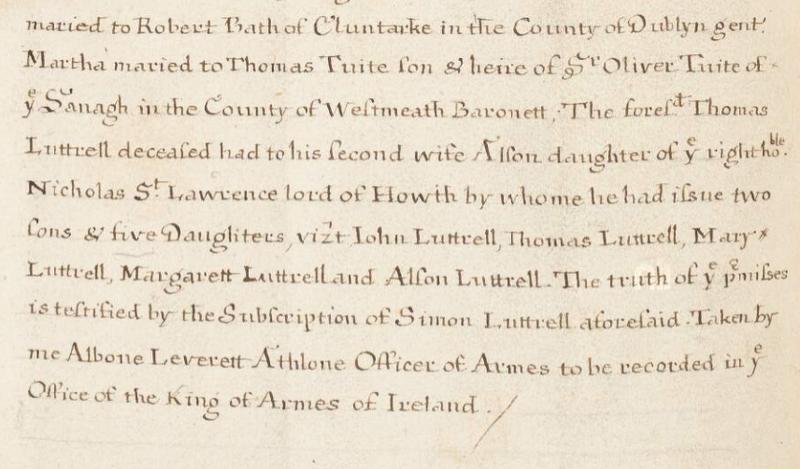 maried to Robert Bath of Cluntarke in the County of Dublyn gent.
Martha maried to Thomas Tuite son & heire of Sr Oliver Tuite of
ye Sanagh in the County of Westmeath Baronett, The foresd Thomas
Luttrell deceased had to his second wife Alson daughter of ye right hoble.
Nicholas St Lawrence lord of Howth by whome he had issue two
sons & five Daughters, vizt Iohn Luttrell, Thomas Luttrell, Mary
Luttrell, Margarett Luttrell and Alson Luttrell. The truth of ye pmisses
is testified by the Subscription of Simon Luttrell aforesaid. Taken by
me Albone Leverett Athlone Officer of Armes to be recorded in ye
Office of the King of Armes of Ireland.